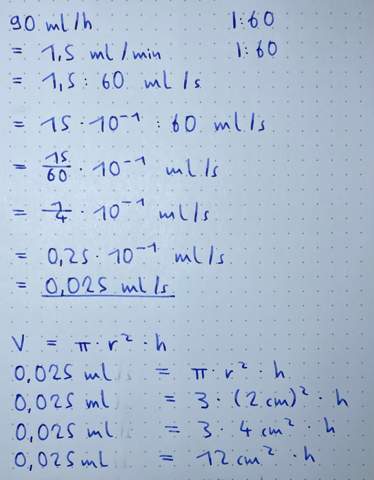 90 ml/h 1:60
= 1,5 ml/min 1:60
= 1,5 : 60 ml/s
= 15 · 10⁻¹ : 60 ml/s
= 15/60 · 10⁻¹ ml/s
= 1/4 · 10⁻¹ ml/s
= 0,25 · 10⁻¹ ml/s
= 0,025 ml/s
V = π · r² · h
0,025 ml = π · r² · h
0,025 ml = 3 · (2 cm)² · h
0,025 ml = 3 · 4 cm² · h
0,025 ml = 12 cm² · h